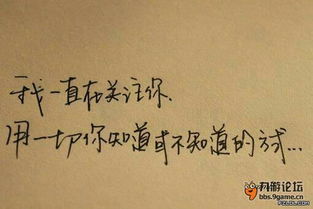 我一直在关注你.
用一切你知道或不知道的方式...
九游论坛
bbs.9game.cn